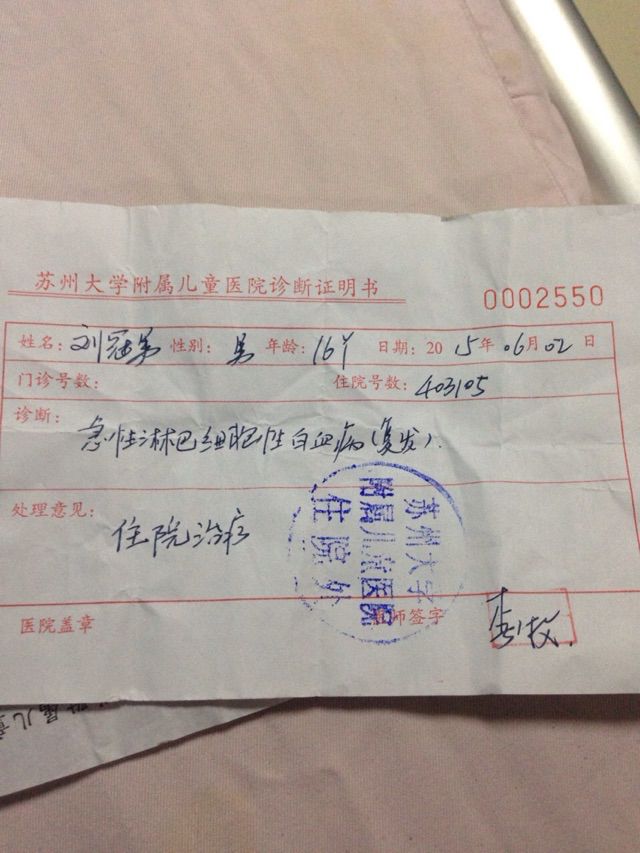 苏州大学附属儿童医院诊断证明书
0002550
姓名: 刘冠 性别: 男 年龄: 16岁 日期: 2015年06月02日
门诊号数: 住院号数: 403105
诊断:
急性淋巴细胞性白血病(复发).
处理意见:
住院治疗
苏州大学
附属儿童医院
住院
医院盖章 医师签字